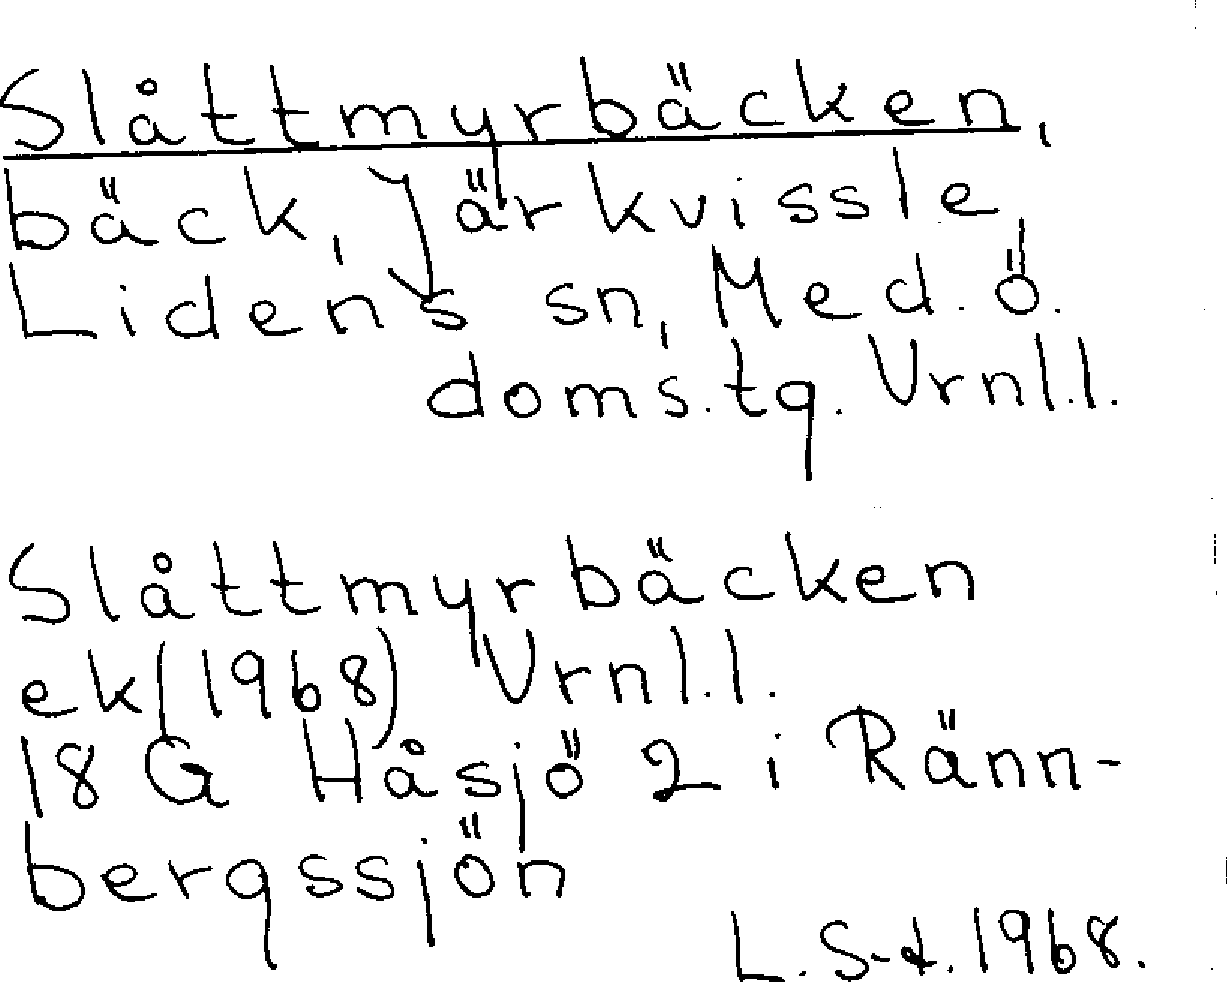 Slåttmyrbäcken,
bäck, Järkvissle,
Lidens sn, Med. ö.
doms.tg. Vrnl.l.
Slåttmyrbäcken
ek(1968) Vrnl.l.
18 G Håsjö 2 i Ränn-
bergssjön
L. S-d. 1968.